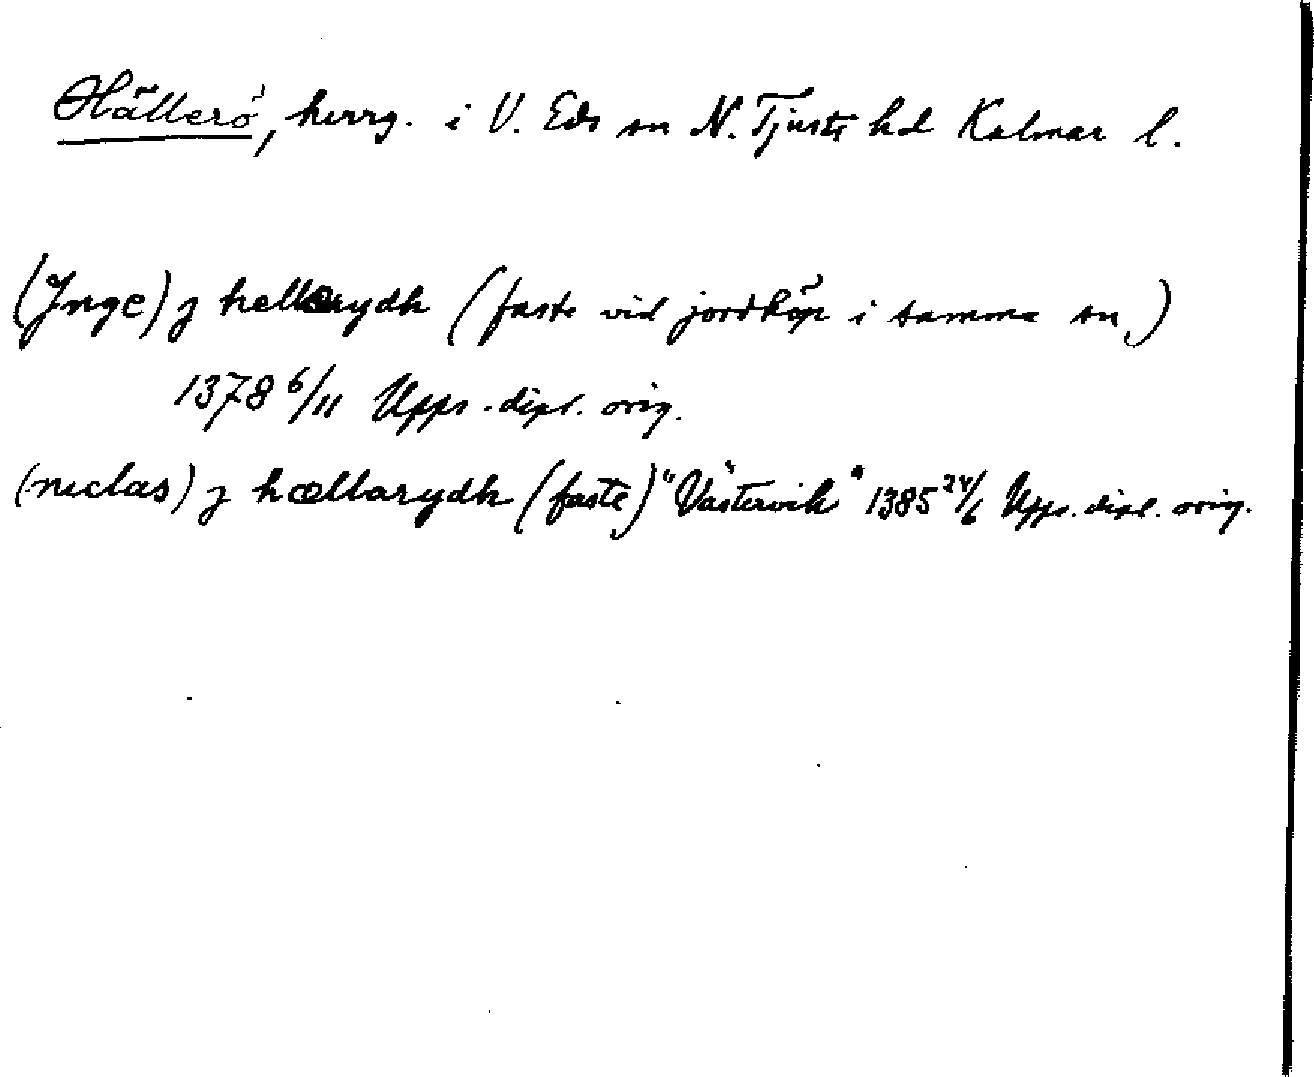 Hällerö, herrg. i V. Eds sn N. Tjusts hd Kalmar l.
(Jnge) j hellærydh (faste vid jordköp i samma sn.)
1378 6/11 Upps. dipl. orig.
(niclas) j hællarydh (faste) "Västervik" 1385 24/6 Upps. dipl. orig.